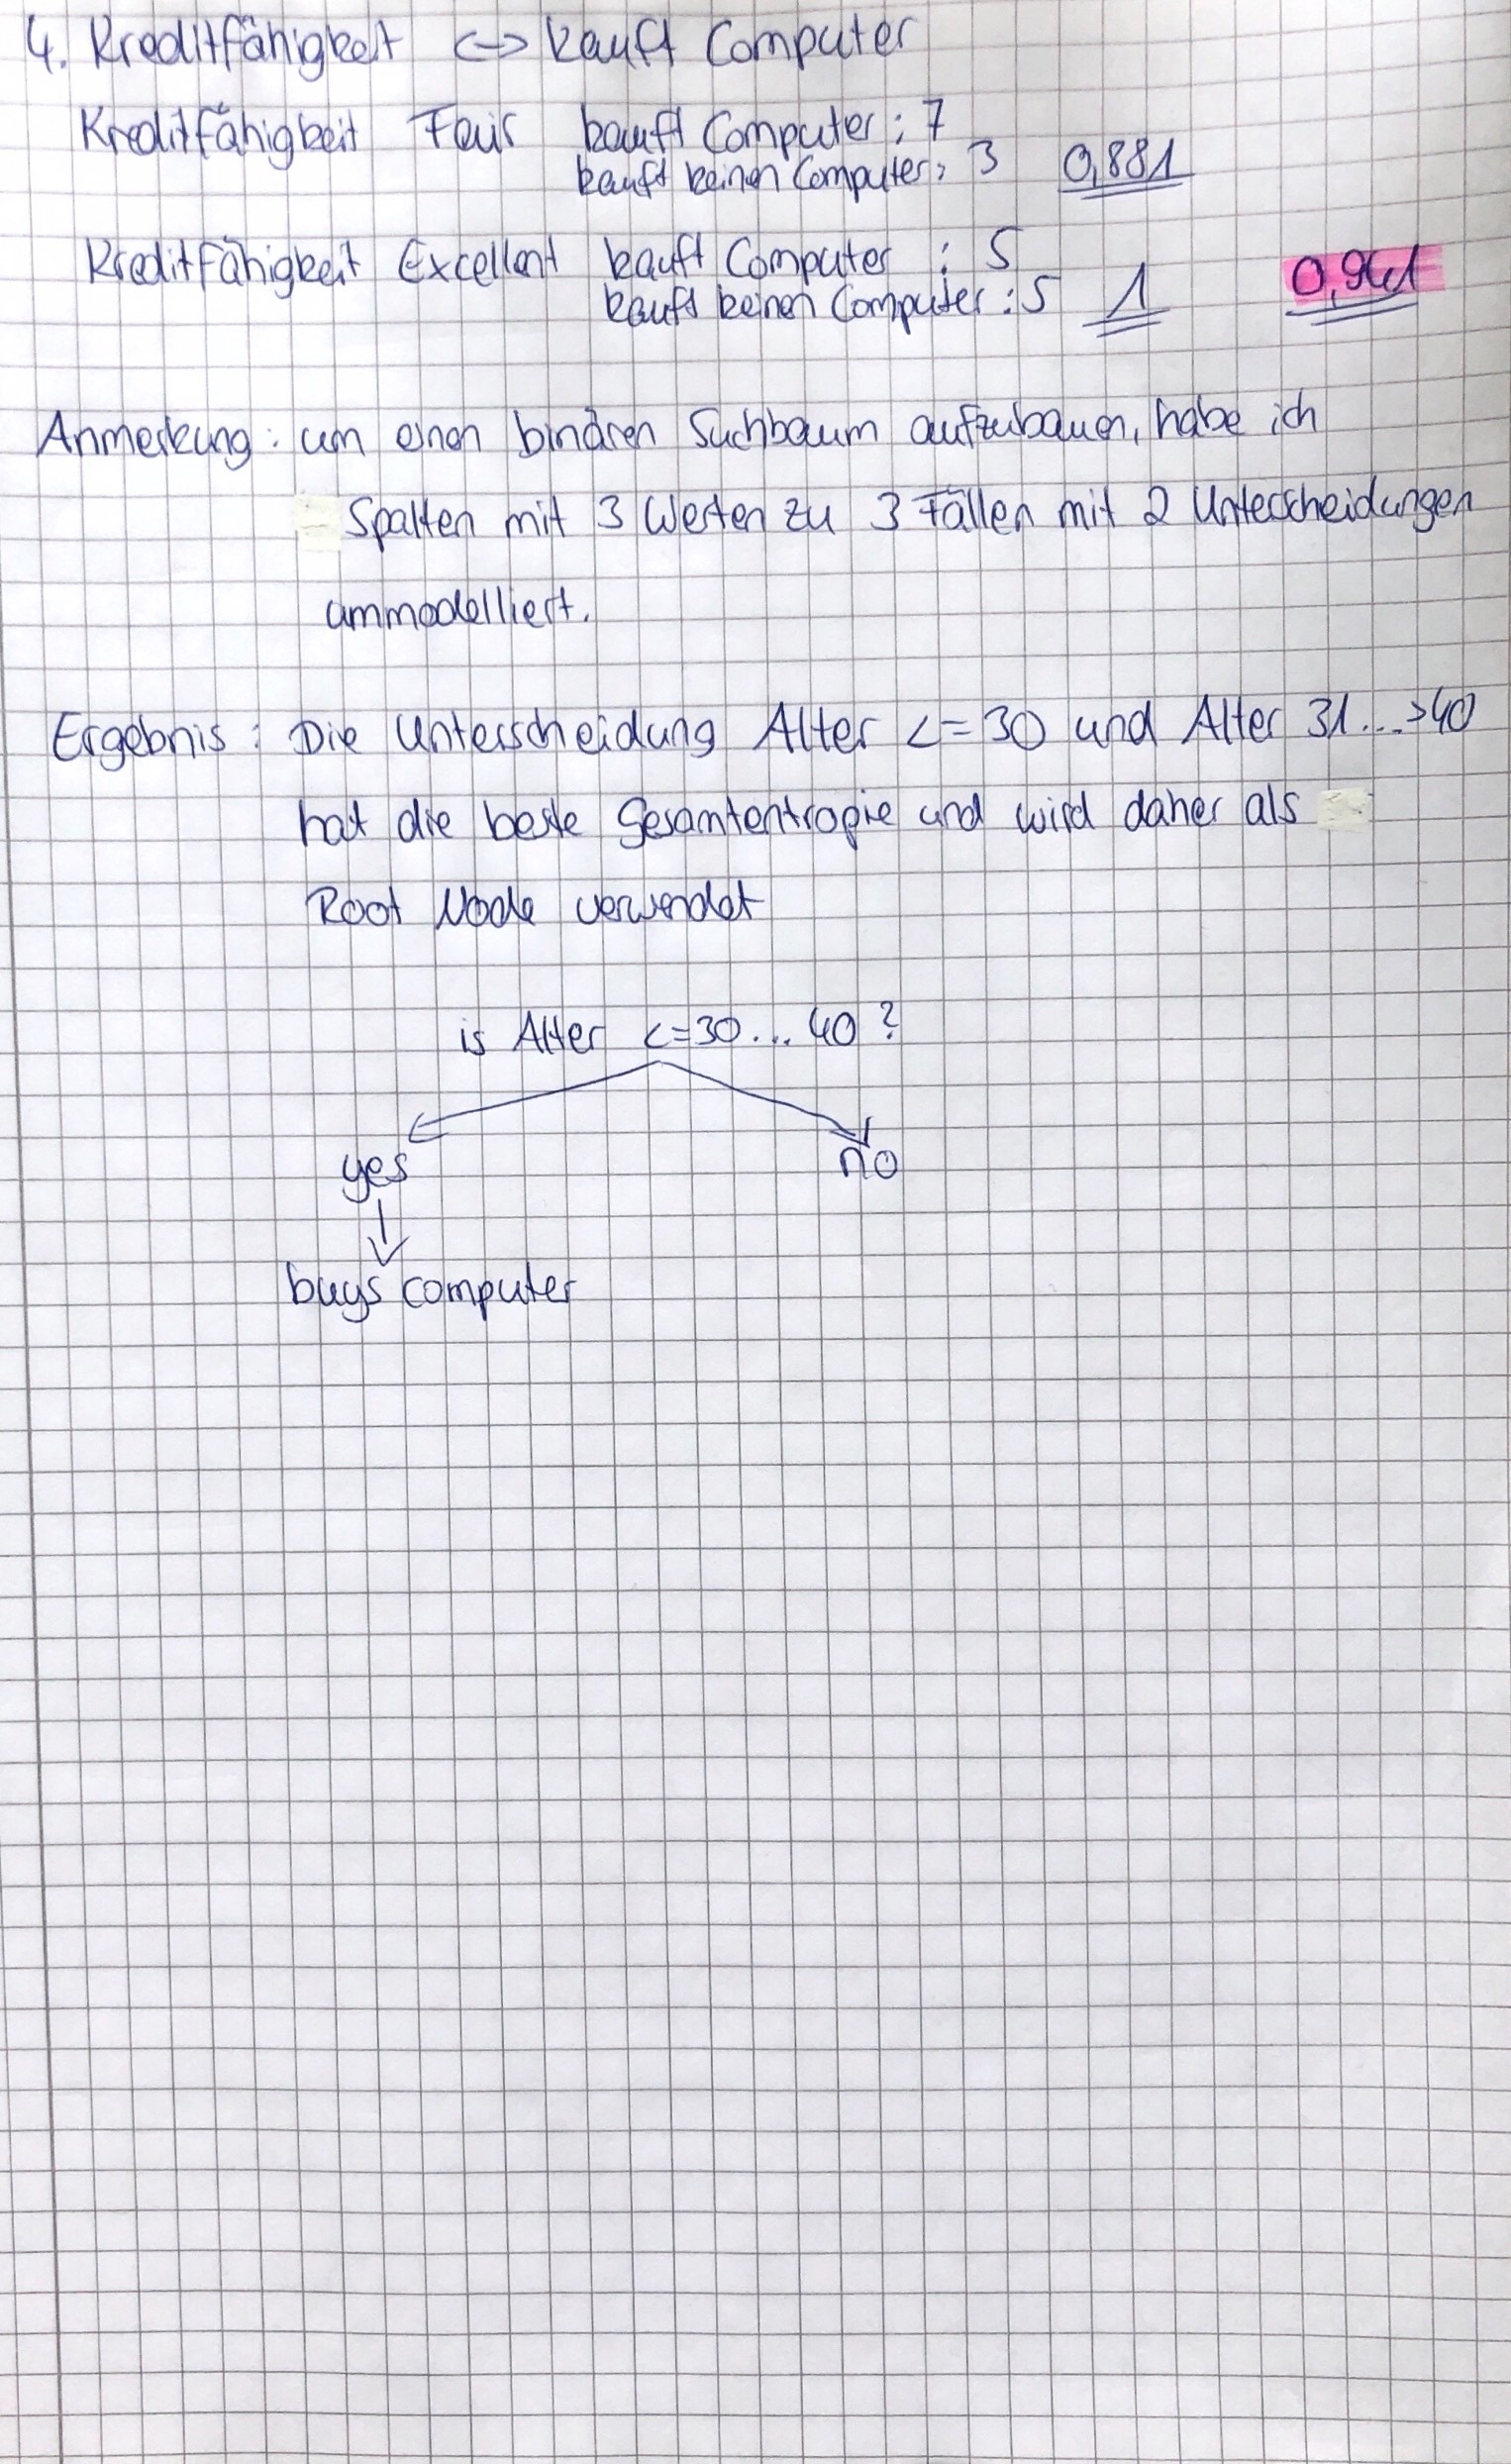 4. Kreditfähigkeit <-> kauft Computer
Kreditfähigkeit Fair kauft Computer: 7
kauft keinen Computer: 3 0,881
Kreditfähigkeit Excellent kauft Computer : 5
kauft keinen Computer: 5 1 0,941
Anmerkung: um einen binären Suchbaum aufzubauen, habe ich
Spalten mit 3 Werten zu 3 Fällen mit 2 Unterscheidungen
ummodelliert.
Ergebnis: Die Unterscheidung Alter <=30 und Alter 31...>40
hat die beste Gesamtentropie und wird daher als
Root Node verwendet
is Alter <=30...40?
yes no
buys computer